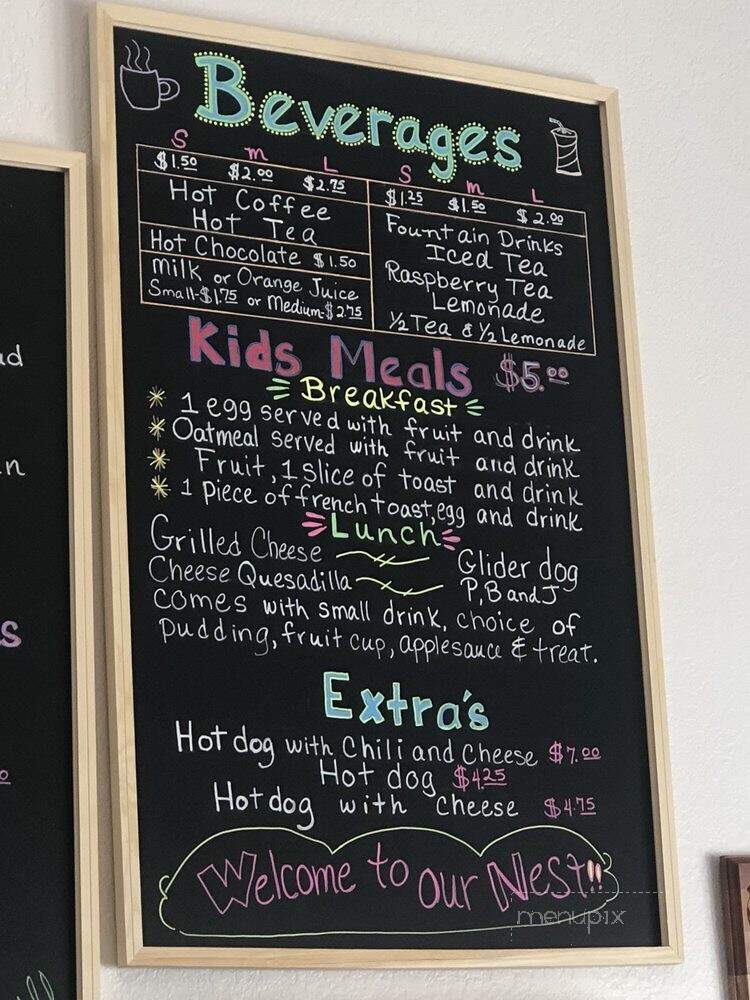 Beverages
S M L
$1.50 $2.00 $2.75
Hot Coffee
Hot Tea
Hot Chocolate $1.50
Milk or Orange Juice
Small-$1.75 or Medium-$2.75
S M L
$1.25 $1.50 $2.00
Fountain Drinks
Iced Tea
Raspberry Tea
Lemonade
½ Tea & ½ Lemonade
Kids Meals $5.00
Breakfast
* 1 egg served with fruit and drink
* Oatmeal served with fruit and drink
* Fruit, 1 slice of toast and drink
* 1 Piece of french toast, egg and drink
Lunch
Grilled Cheese Glider dog
Cheese Quesadilla P, B and J
comes with small drink, choice of
pudding, fruit cup, applesauce & treat.
Extra's
Hot dog with Chili and Cheese $7.00
Hot dog $4.25
Hot dog with cheese $4.75
Welcome to our Nest!!
menupix